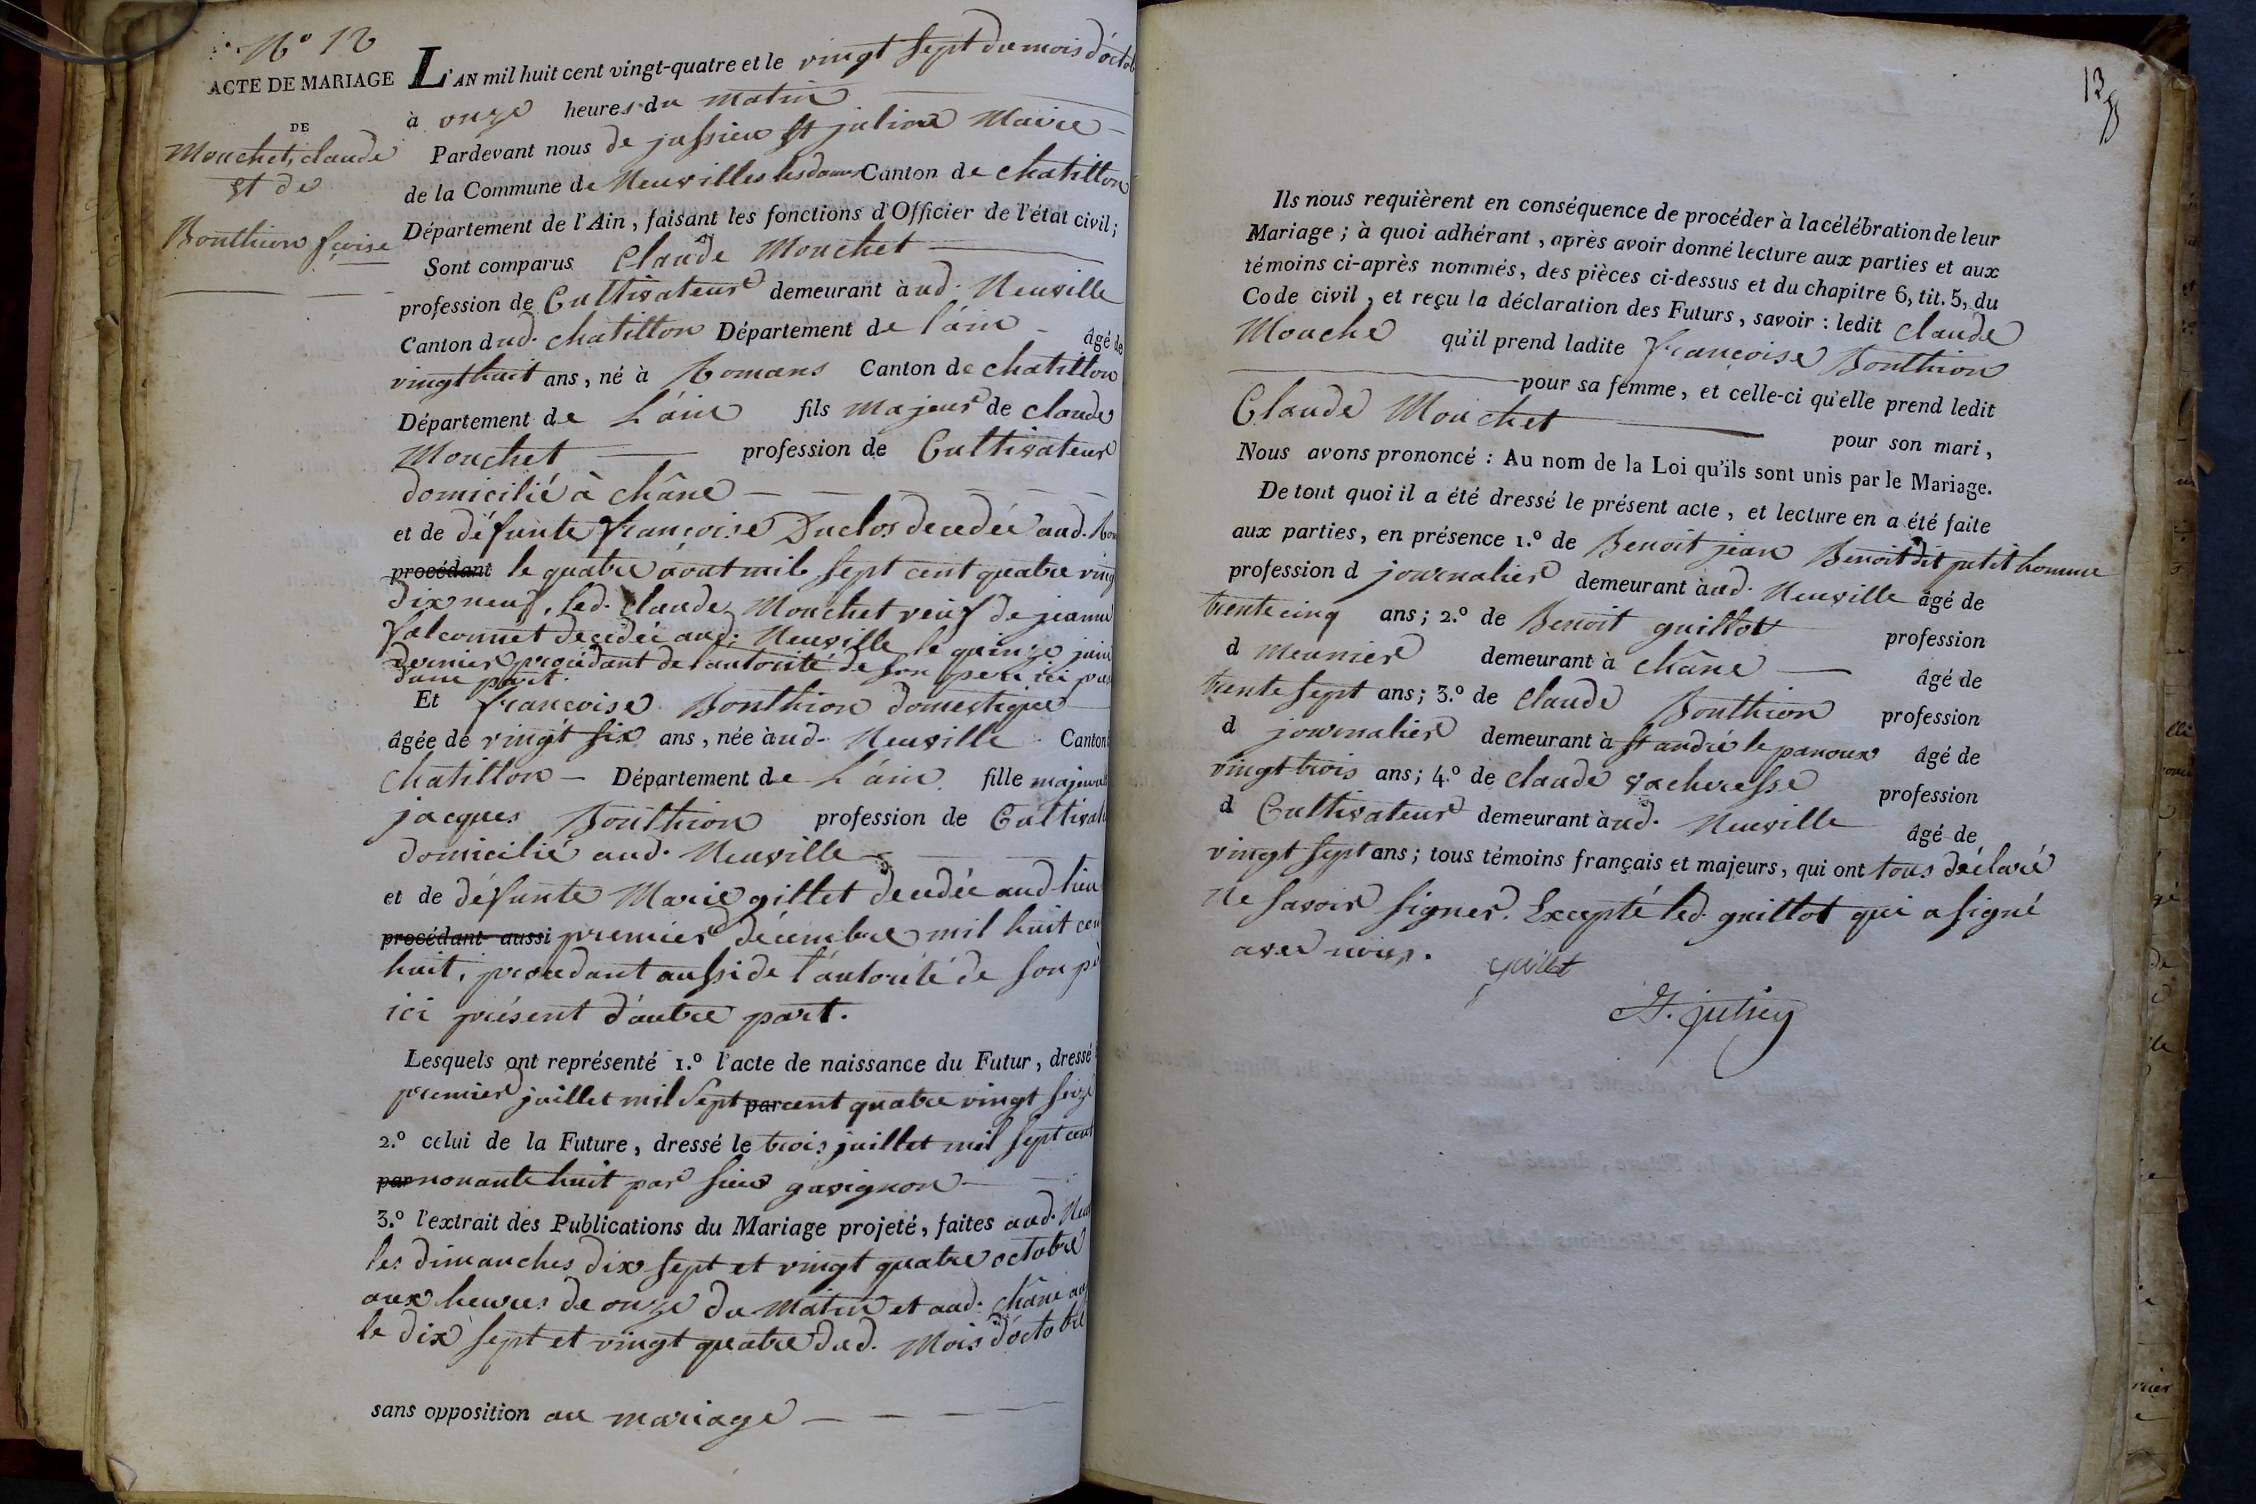 N° 12
ACTE DE MARIAGE
DE
Mouchet, claude
et de
Bonthion fçoise
L'AN mil huit cent vingt-quatre et le vingt sept du mois d'octob
à onze heures du matin
Pardevant nous de jussieu st julien Maire
de la Commune de Neuvilles les dames Canton de chatillon
Département de l'Ain, faisant les fonctions d'Officier de l'état civil;
Sont comparus Claude Mouchet
profession de Cultivateur demeurant àud. Neuville
Canton dud. chatillon Département de l'ain âgé de
vingt huit ans, né à Romans Canton de chatillon
Département de L'ain fils majeur de claude
Mouchet profession de Cultivateur
domicilié à châne
et de défunte françoise Duclos decedée aud. Rom
procédant le quatre aout mil sept cent quatre ving
dix neuf, led. claude Mouchet veuf de jeanne
falconnet decedée aud. Neuville le quinze juin
dernier procédant de l'autorité de son pere ici pres
d'une part.
Et francoise Bonthion domestique
âgée de vingt six ans, née àud. Neuville Canton
chatillon Département de L'ain fille majeure
jacques Bonthion profession de Cultivate
domicilié aud. Neuville
et de défunte Marie gillet decedée aud lieu
procédant aussi premier décembre mil huit cen
huit, procedant aussi de l'autorité de son pè
ici présent d'autre part.
Lesquels ont représenté 1.° l'acte de naissance du Futur, dressé
premier juillet mil sept par cent quatre vingt seize
2.° celui de la Future, dressé le trois juillet mil sept cent
par nonante huit par sieur gavignon
3.° l'extrait des Publications du Mariage projeté, faites aud. Neu
les dimanches dix sept et vingt quatre octobre
aux heures de onze du matin et aud. châne au
le dix sept et vingt quatre dud. Mois d'octobre
sans opposition au mariage
13
Ils nous requièrent en conséquence de procéder à la célébration de leur
Mariage; à quoi adhérant, après avoir donné lecture aux parties et aux
témoins ci-après nommés, des pièces ci-dessus et du chapitre 6, tit. 5, du
Code civil, et reçu la déclaration des Futurs, savoir: ledit claude
Mouche qu'il prend ladite françoise Bonthion
pour sa femme, et celle-ci qu'elle prend ledit
Claude Mouchet pour son mari,
Nous avons prononcé: Au nom de la Loi qu'ils sont unis par le Mariage.
De tout quoi il a été dressé le présent acte, et lecture en a été faite
aux parties, en présence 1.° de Benoit jean Benoit dit petit homme
profession d journalier demeurant àud. Neuville âgé de
trente cinq ans; 2.° de Benoit guillot profession
d meunier demeurant à châne âgé de
trente sept ans; 3.° de claude Bonthion profession
d journalier demeurant à st andré le panoux âgé de
vingt trois ans; 4.° de claude vacheresse profession
d Cultivateur demeurant àud. Neuville âgé de
vingt sept ans; tous témoins français et majeurs, qui ont tous déclaré
ne savoir signer. Excepté led. guillot qui a signé
avec nous.